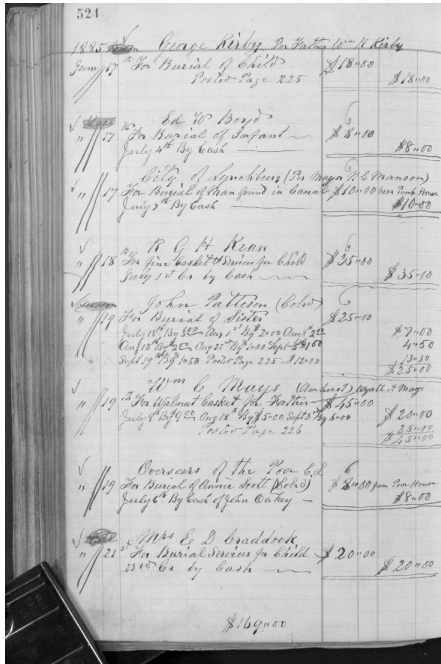 524
1885 George Kirby Per Father Wm H Kirby
June 17th For Burial of Child $18"00
Posted Page 225 $18"00
Ed W Boyd
" 17th For Burial of Infant $8"00
July 4th By Cash $8"00
City of Lynchburg (Per Mayor N. C. Manson)
" 17 For Burial of Man found in Canal $10"00 from Pump House
July 3rd By Cash $10"00
R G H Kean
" 18th For fine Casket & Services for Child $35"00
July 1st Cr by Cash $35"00
John Patteson (Colrd)
" 19 For Burial of Sister $25"00
July 18th By Aug 1st By 2"00 $7"00
Aug 15th By Aug 22nd By 1"00 Sept 5th 1"50 4"50
Sept 19th By 1"50 Posted Page 225 - $12"00 13"50
$25"00
Wm C Mays (Amherst) Wyatt H Mays
" 19th For Walnut Casket for Father $45"00
July 8th By Aug 15th By $5"00 Sept 5th By 6"00 $20"00
Posted Page 226 25"00
$45"00
Overseers of the Poor C.L
" 19 For Burial of Annie Scott (Colrd) $8"00 from Poor House
July 6th By Cash of John Oakey $8"00
Mrs E. D Craddock
" 21st For Burial Services for Child $20"00
23rd Cr by Cash $20"00
$169"00